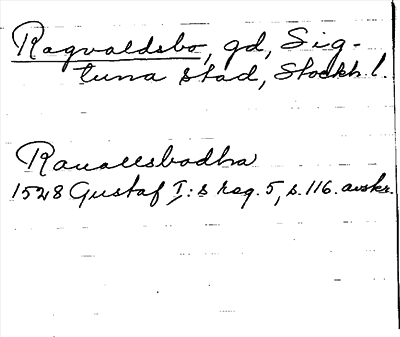 Ragvaldsbo, gd, Sig-
tuna stad, Stockh. l.
Rauallsbodha
1528 Gustaf I:s reg. 5, s. 116. avskr.